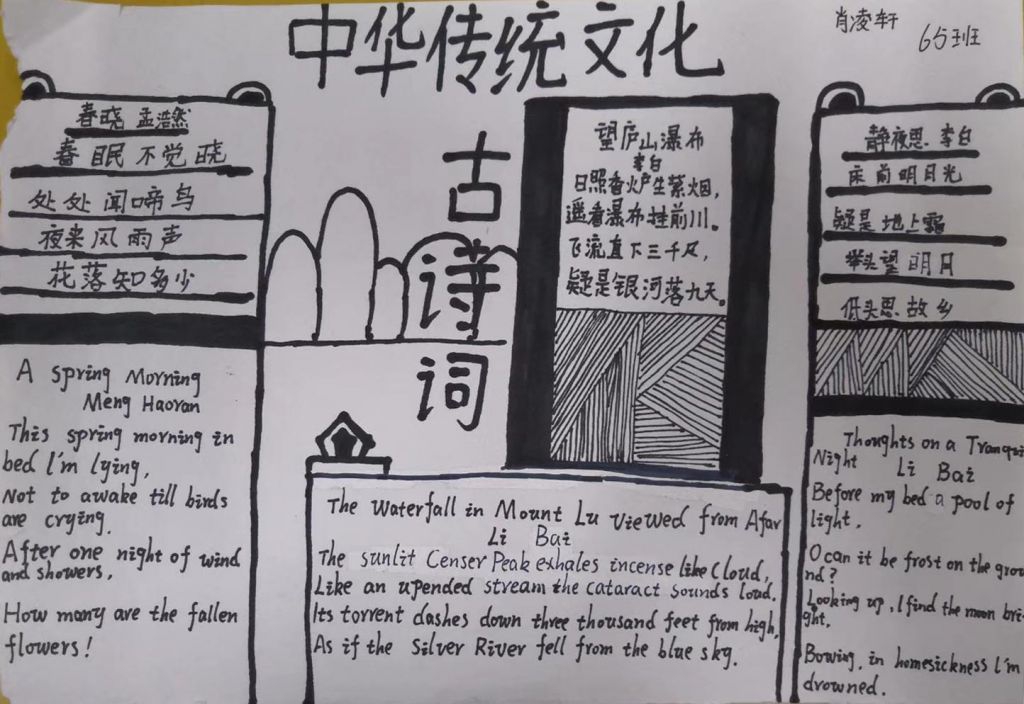 中华传统文化
肖凌轩
65班
春晓 孟浩然
春眠不觉晓
处处闻啼鸟
夜来风雨声
花落知多少
A Spring Morning
Meng Haoran
This spring morning in
bed I'm lying,
Not to awake till birds
are crying.
After one night of wind
and showers,
How many are the fallen
flowers!
古诗词
望庐山瀑布
李白
日照香炉生紫烟,
遥看瀑布挂前川。
飞流直下三千尺,
疑是银河落九天。
The Waterfall in Mount Lu Viewed from Afar
Li Bai
The sunlit Censer Peak exhales incense like cloud,
Like an upended stream the cataract sounds loud.
Its torrent dashes down three thousand feet from high,
As if the Silver River fell from the blue sky.
静夜思 李白
床前明月光
疑是地上霜
举头望明月
低头思故乡
Thoughts on a Tranqui
Night Li Bai
Before my bed a pool of
light,
O can it be frost on the grou
nd?
Looking up, I find the moon bri
ght,
Bowing, in homesickness I'm
drowned.